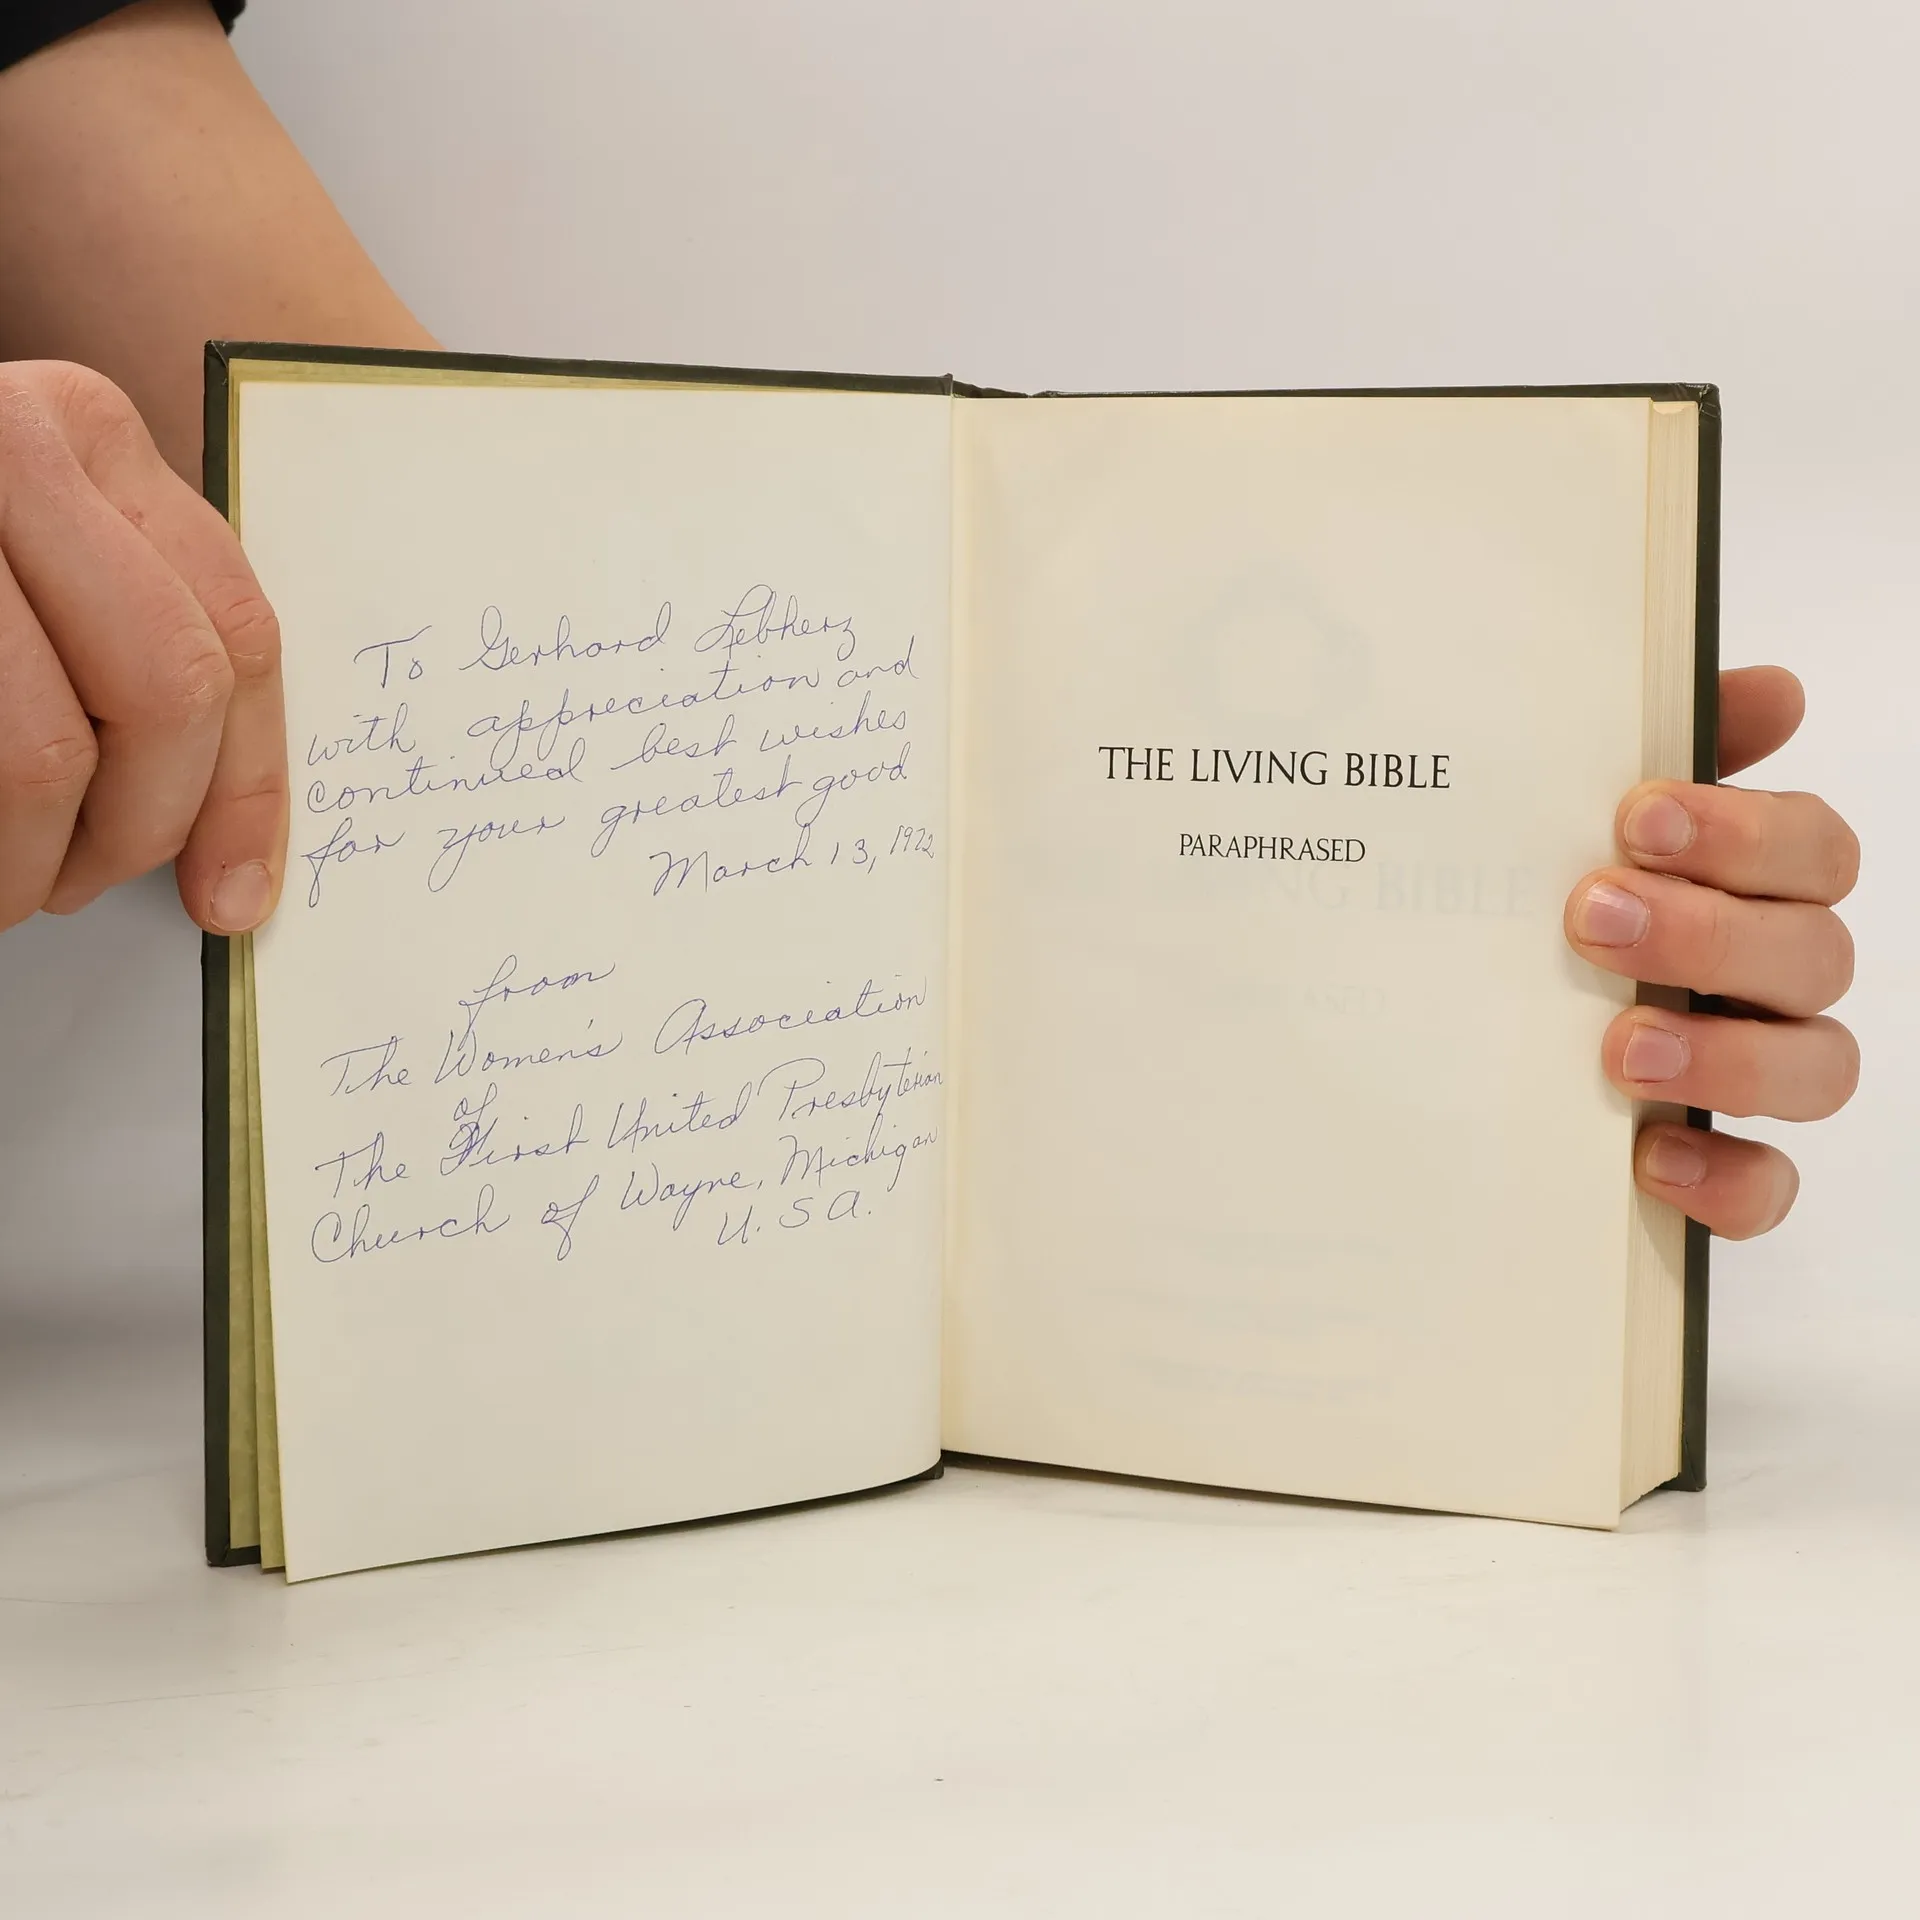 To Gerhard Lebherz
with appreciation and
continued best wishes
for your greatest good
March 13, 1972
from
The Women's Association
of
The First United Presbyterian
Church of Wayne, Michigan
U.S.A.
THE LIVING BIBLE
PARAPHRASED
NG BIBLE